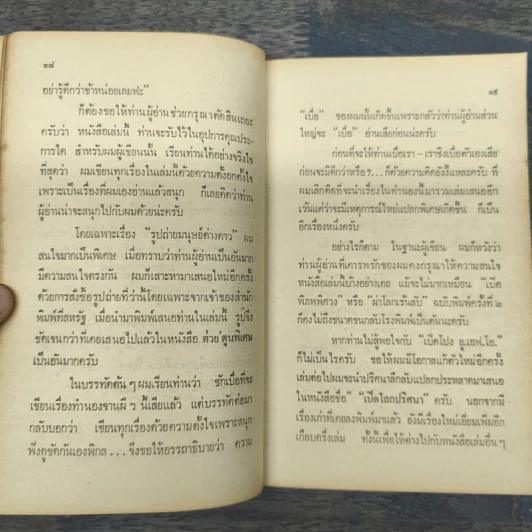 ๑๘
อย่ารู้ดีกว่าข้าหน่อยเลยฟะ"
ก็ต้องขอให้ท่านผู้อ่านช่วยกรุณาตัดสินเถอะ
ครับว่า หนังสือเล่มนี้ ท่านจะรับไว้ในอุปการคุณประ-
การใด สำหรับผมผู้เขียนนั้น เรียนท่านได้อย่างจริงใจ
ที่สุดว่า ผมเขียนทุกเรื่องในเล่มนี้ด้วยความตั้งอกตั้งใจ
เพราะเป็นเรื่องที่ผมเองอ่านแล้วสนุก ก็เลยคิดว่าท่าน
ผู้อ่านน่าจะสนุกไปกับผมด้วยน่ะครับ
โดยเฉพาะเรื่อง "รูปถ่ายมนุษย์ต่างดาว" ผม
สนใจมากเป็นพิเศษ เมื่อทราบว่าท่านผู้อ่านเป็นอันมาก
มีความสนใจตรงกัน ผมก็เสาะหามาเสนอใหม่อีกครั้ง
ด้วยการสั่งซื้อรูปถ่ายที่ว่านี้โดยเฉพาะจากเจ้าของสำนัก
พิมพ์ที่สหรัฐ เมื่อนำมาพิมพ์เสนอท่านในเล่มนี้ รูปจึง
ชัดเจนกว่าที่เคยเสนอไปแล้วในหนังสือ ต่วย'ตูนพิเศษ
เป็นอันมากครับ
ในบรรทัดต้น ๆ ผมเรียนท่านว่า ชักเบื่อที่จะ
เขียนเรื่องทำนองจานผี ๆ นี้เสียแล้ว แต่บรรทัดต่อมา
กลับบอกว่า เขียนทุกเรื่องด้วยความตั้งใจเพราะสนุก
ฟังดูขัดกันเองพิกล . . . จึงขอให้อรรถาธิบายว่า ความ
๑๙
"เบื่อ" ของผมนั้นเกิดขึ้นเพราะกลัวว่าท่านผู้อ่านส่วน
ใหญ่จะ "เบื่อ" อ่านเสียก่อนน่ะครับ
ก่อนที่จะให้ท่านเบื่อเรา – เราชิงเบื่อตัวเองเสีย
ก่อนจะดีกว่าหรือ ? . . ก็ด้วยความคิดยังงี้แหละครับ ที่
ผมเลิกคิดที่จะนำเรื่องในทำนองนี้มารวมเล่มเสนออีก
เว้นแต่ว่าจะมีเหตุการณ์ใหม่แปลกพิเศษเกิดขึ้น ก็เป็น
อีกเรื่องหนึ่งครับ
อย่างไรก็ตาม ในฐานะผู้เขียน ผมก็หวังว่า
ท่านผู้อ่านที่เคารพรักของผมคงกรุณาให้ความสนใจ
หนังสือเล่มนี้บ้างอย่างเคย แม้จะไม่มากเหมือน เปิด
พิภพพิศวง หรือ ผ่าโลกเร้นลับ ฉบับพิมพ์ครั้งที่ ๒
ก็คงไม่ถึงขนาดขนกลับโรงพิมพ์เป็นคันนะครับ
หากท่านไม่สู้พอใจกับ "เปิดโปง ยู.เอฟ.โอ."
ก็ไม่เป็นไรครับ ขอให้ผมมีโอกาสแก้ตัวใหม่อีกครั้ง
เล่มต่อไปผมจะนำปริศนาลึกลับแปลกประหลาดมาเสนอ
ในหนังสือชื่อ "เปิดโลกปริศนา" ครับ นอกจากมี
เรื่องเก่าที่เคยลงพิมพ์มาแล้ว ยังมีเรื่องใหม่เอี่ยมเพิ่มอีก
เกือบครึ่งเล่ม ทั้งนี้เพื่อให้ต่างไปกับหนังสือเล่มอื่น ๆ